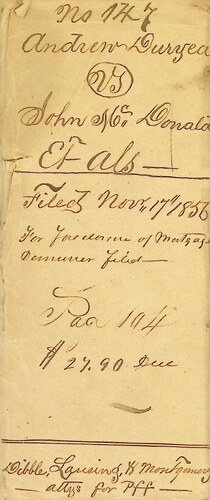 No 147
Andrew Duryea
Vs
John Mc Donald
Et als
Filed Novr 17th 1856
For foreclosure of Mortgage
Demurrer filed
Paa 104
$ 27.90 Due
Dibble, Lansing, & Montgomery
attys for Pff